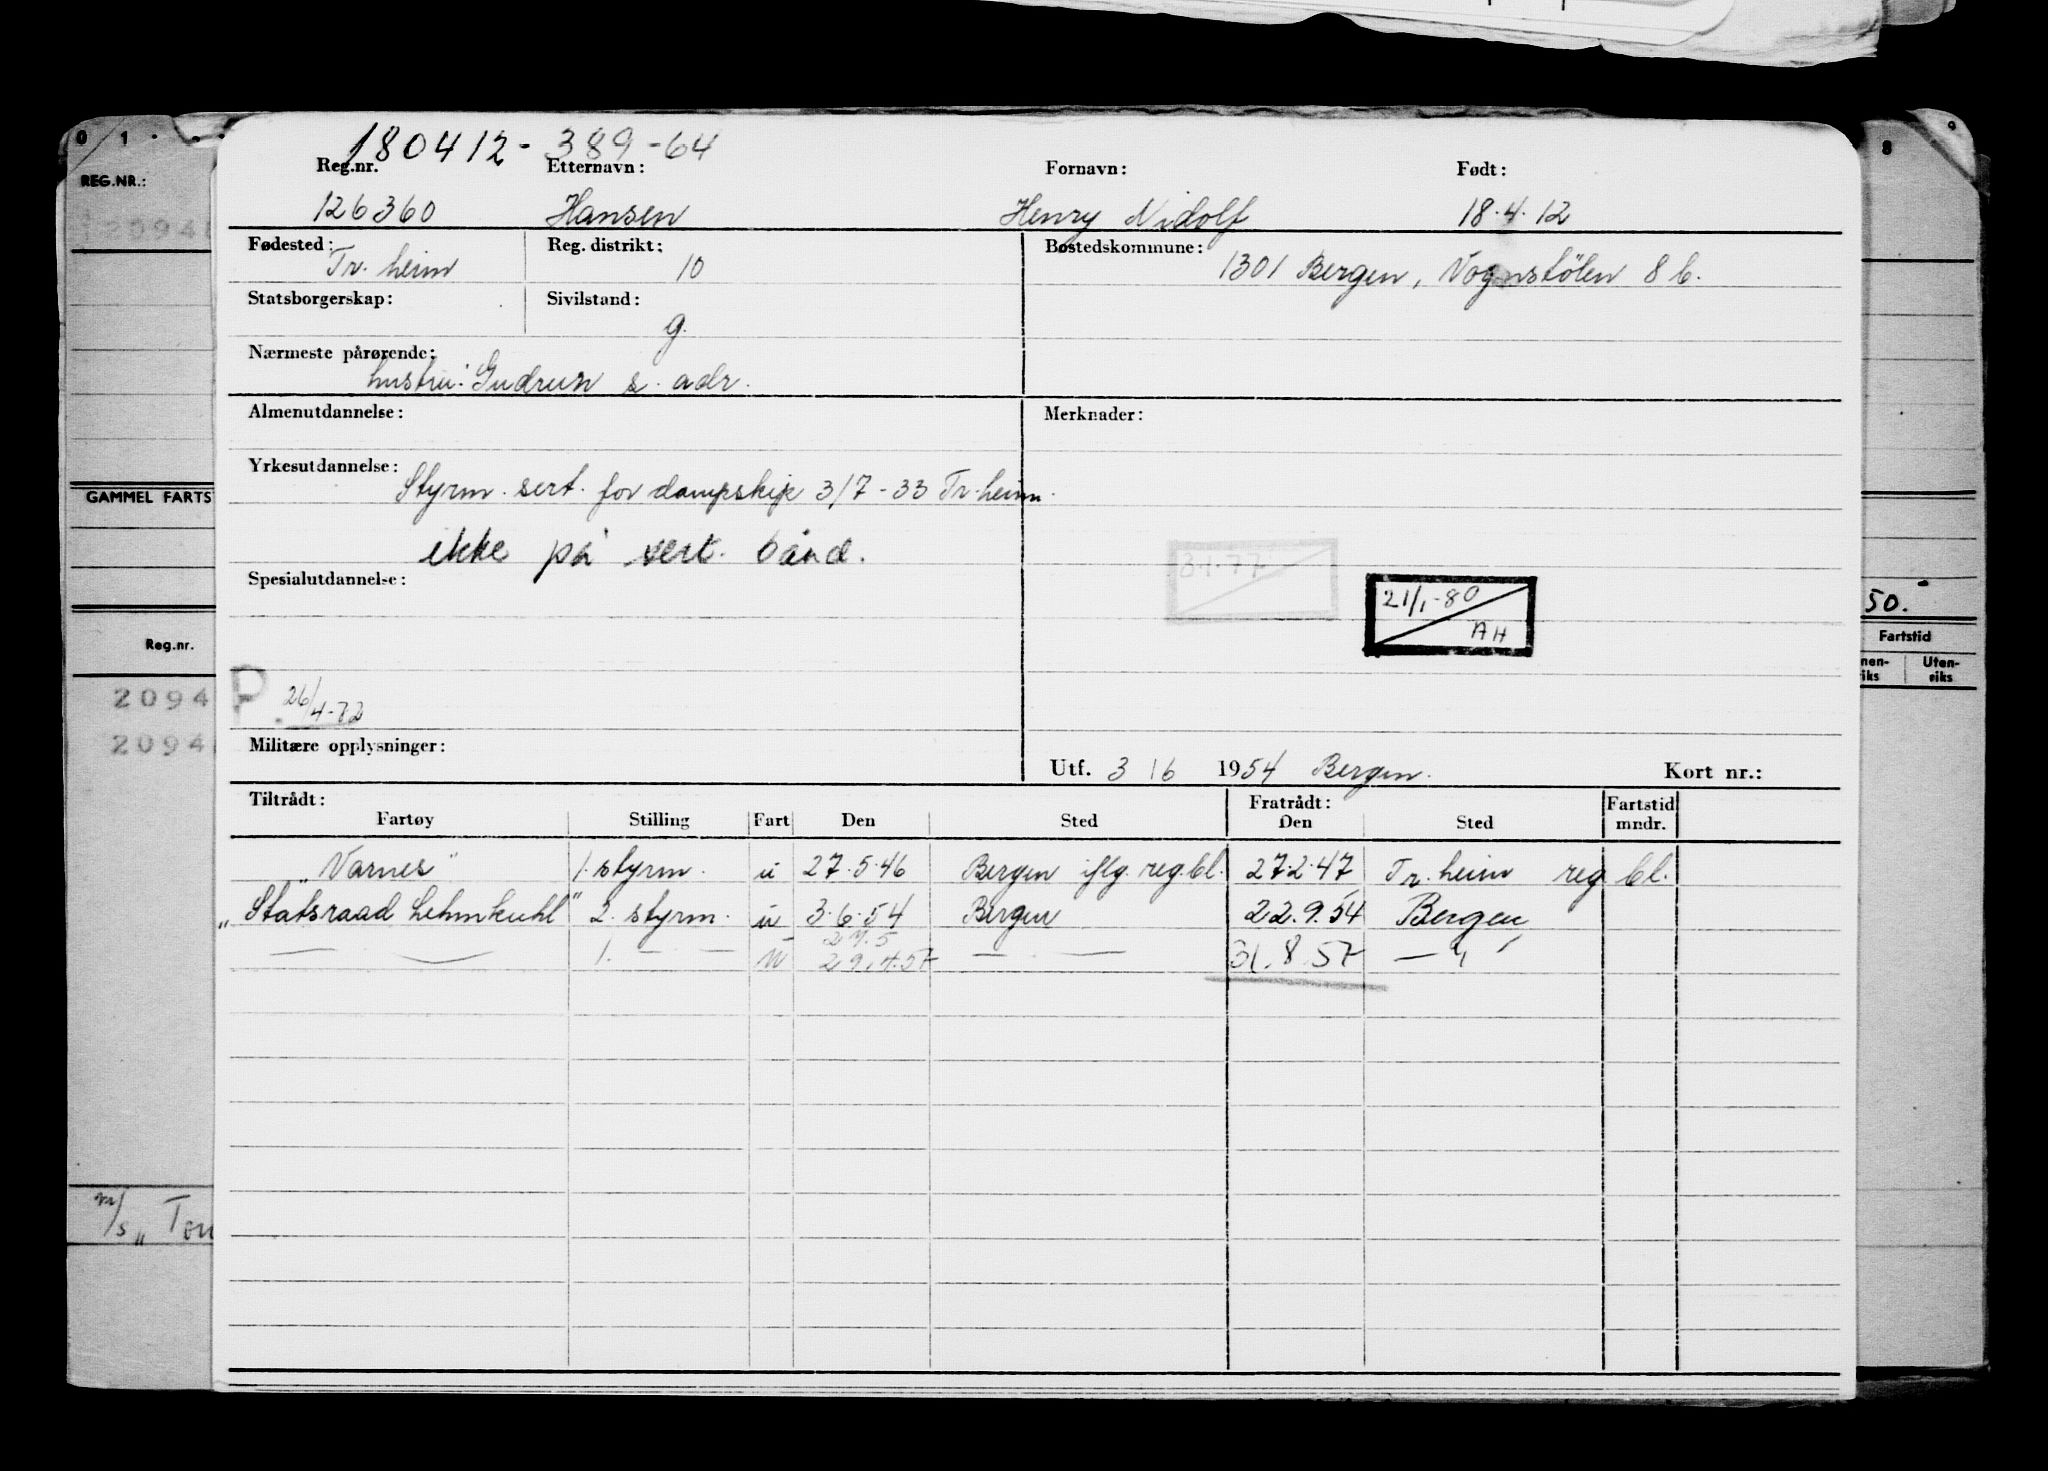 0 1
REG.NR.:
2094
GAMMEL FARTS
Reg.nr.
2094
2094
m/s „Ton
180412-389-64
Reg.nr. Etternavn: Fornavn: Født:
126360 Hansen Henry Nidolf 18.4.12
Fødested: Reg. distrikt: Bostedskommune:
Tr.heim 10 1301 Bergen, Vognstölen 8 b.
Statsborgerskap: Sivilstand:
g.
Nærmeste pårørende:
hustru: Gudrun s. adr.
Almenutdannelse: Merknader:
Yrkesutdannelse:
Styrm. sert. for dampskip 3/7-33 Tr.heim.
ikke på sert. bånd.
3.1.77
Spesialutdannelse:
21/1-80
AH
P. 26/4-72
Militære opplysninger:
Utf. 3 / 6 1954 Bergen. Kort nr.:
Tiltrådt: Fratrådt: Fartstid
Fartøy Stilling Fart Den Sted Den Sted mndr.
„Varnes" 1. styrm. u 27.5.46 Bergen iflg. reg.bl. 27.2.47 Tr.heim reg bl.
„Statsraad Lehmkuhl" 2. styrm. u 3.6.54 Bergen 22.9.54 Bergen
27.5
— — 1. — — u 29.4.57 — — 31.8.57 — " —
8 9
50.
Fartstid
nen- Uten-
iks riks